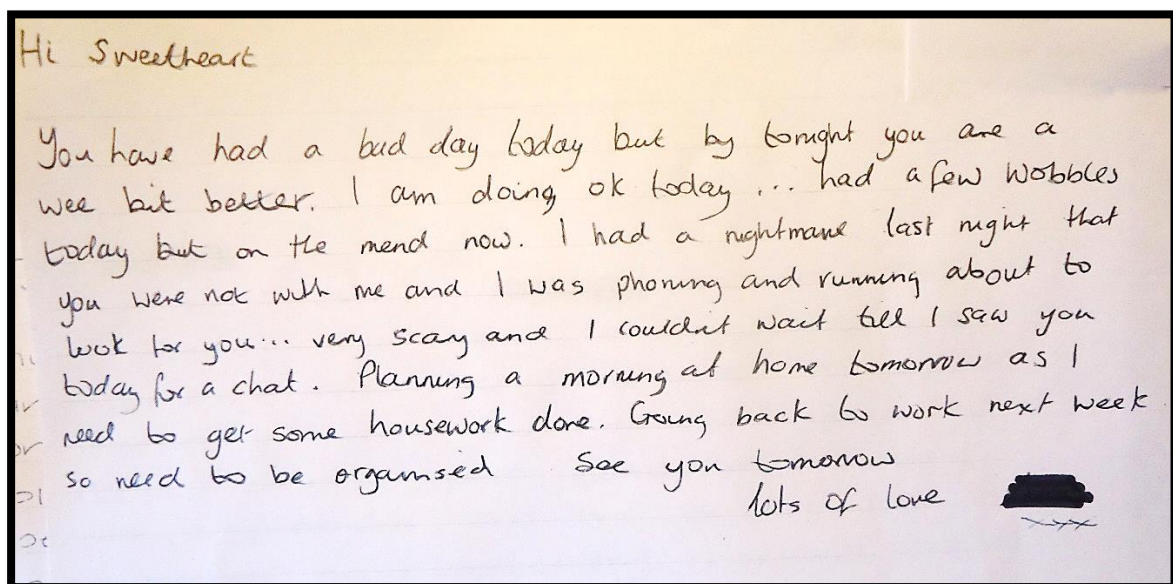 Hi Sweetheart
You have had a bad day today but by tonight you are a
wee bit better. I am doing ok today ... had a few wobbles
today but on the mend now. I had a nightmare last night that
you were not with me and I was phoning and running about to
look for you... very scary and I couldn't wait till I saw you
today for a chat. Planning a morning at home tomorrow as I
need to get some housework done. Going back to work next week
so need to be organised See you tomorrow
lots of love
xxx